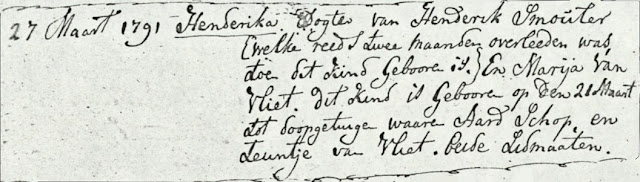 27 Maart 1791 Henderika Dogter van Henderik Smoúter
(welke reeds twee maanden overleeden was,
toen dit Kind Geboore is.) En Marija Van
Vliet. dit Kind is Geboore op Den 21 Maart
tot doopgetuige waare Aard Schop. en
Teuntje van Vliet. beide Ledmaaten.